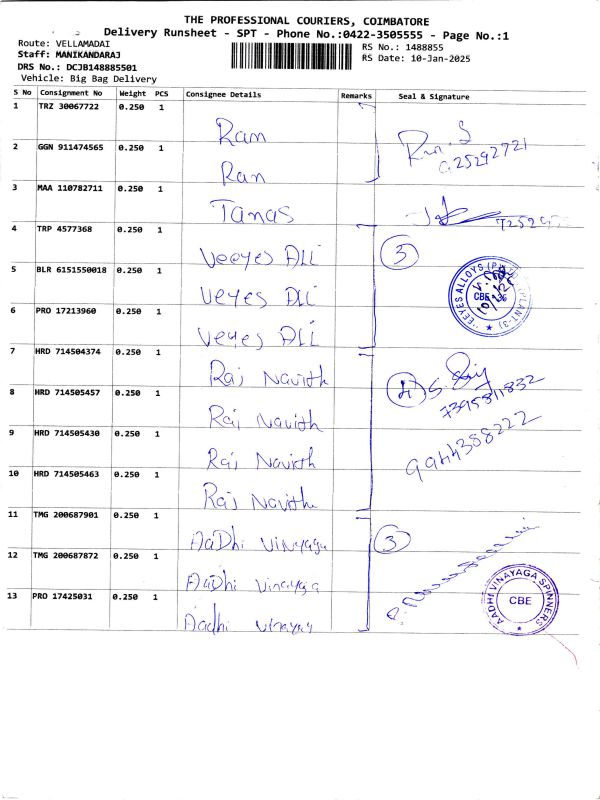 THE PROFESSIONAL COURIERS, COIMBATORE
Delivery Runsheet - SPT - Phone No.:0422-3505555 - Page No.:1
Route: VELLAMADAI
Staff: MANIKANDARAJ
DRS No.: DCJB148885501
Vehicle: Big Bag Delivery
RS No.: 1488855
RS Date: 10-Jan-2025
S No Consignment No Weight PCS Consignee Details Remarks Seal & Signature
1 TRZ 30067722 0.250 1 Ram
2 GGN 911474565 0.250 1 Ram
3 MAA 110782711 0.250 1 Tanas
4 TRP 4577368 0.250 1 Veeyes ALI 3
5 BLR 6151550018 0.250 1 Veyes ALI
6 PRO 17213960 0.250 1 Veyes ALI
CBE - 36
7 HRD 714504374 0.250 1 Raj Navith
8 HRD 714505457 0.250 1 Raj Navith 4
7395811832
9 HRD 714505430 0.250 1 Raj Navith
9944388222
10 HRD 714505463 0.250 1 Raj Navith
11 TMG 200687901 0.250 1 AaDhi Vinayaga 3
12 TMG 200687872 0.250 1 AaDhi Vinayaga
13 PRO 17425031 0.250 1 Aadhi Vinayag
AADHI VINAYAGA SPINNERS
CBE